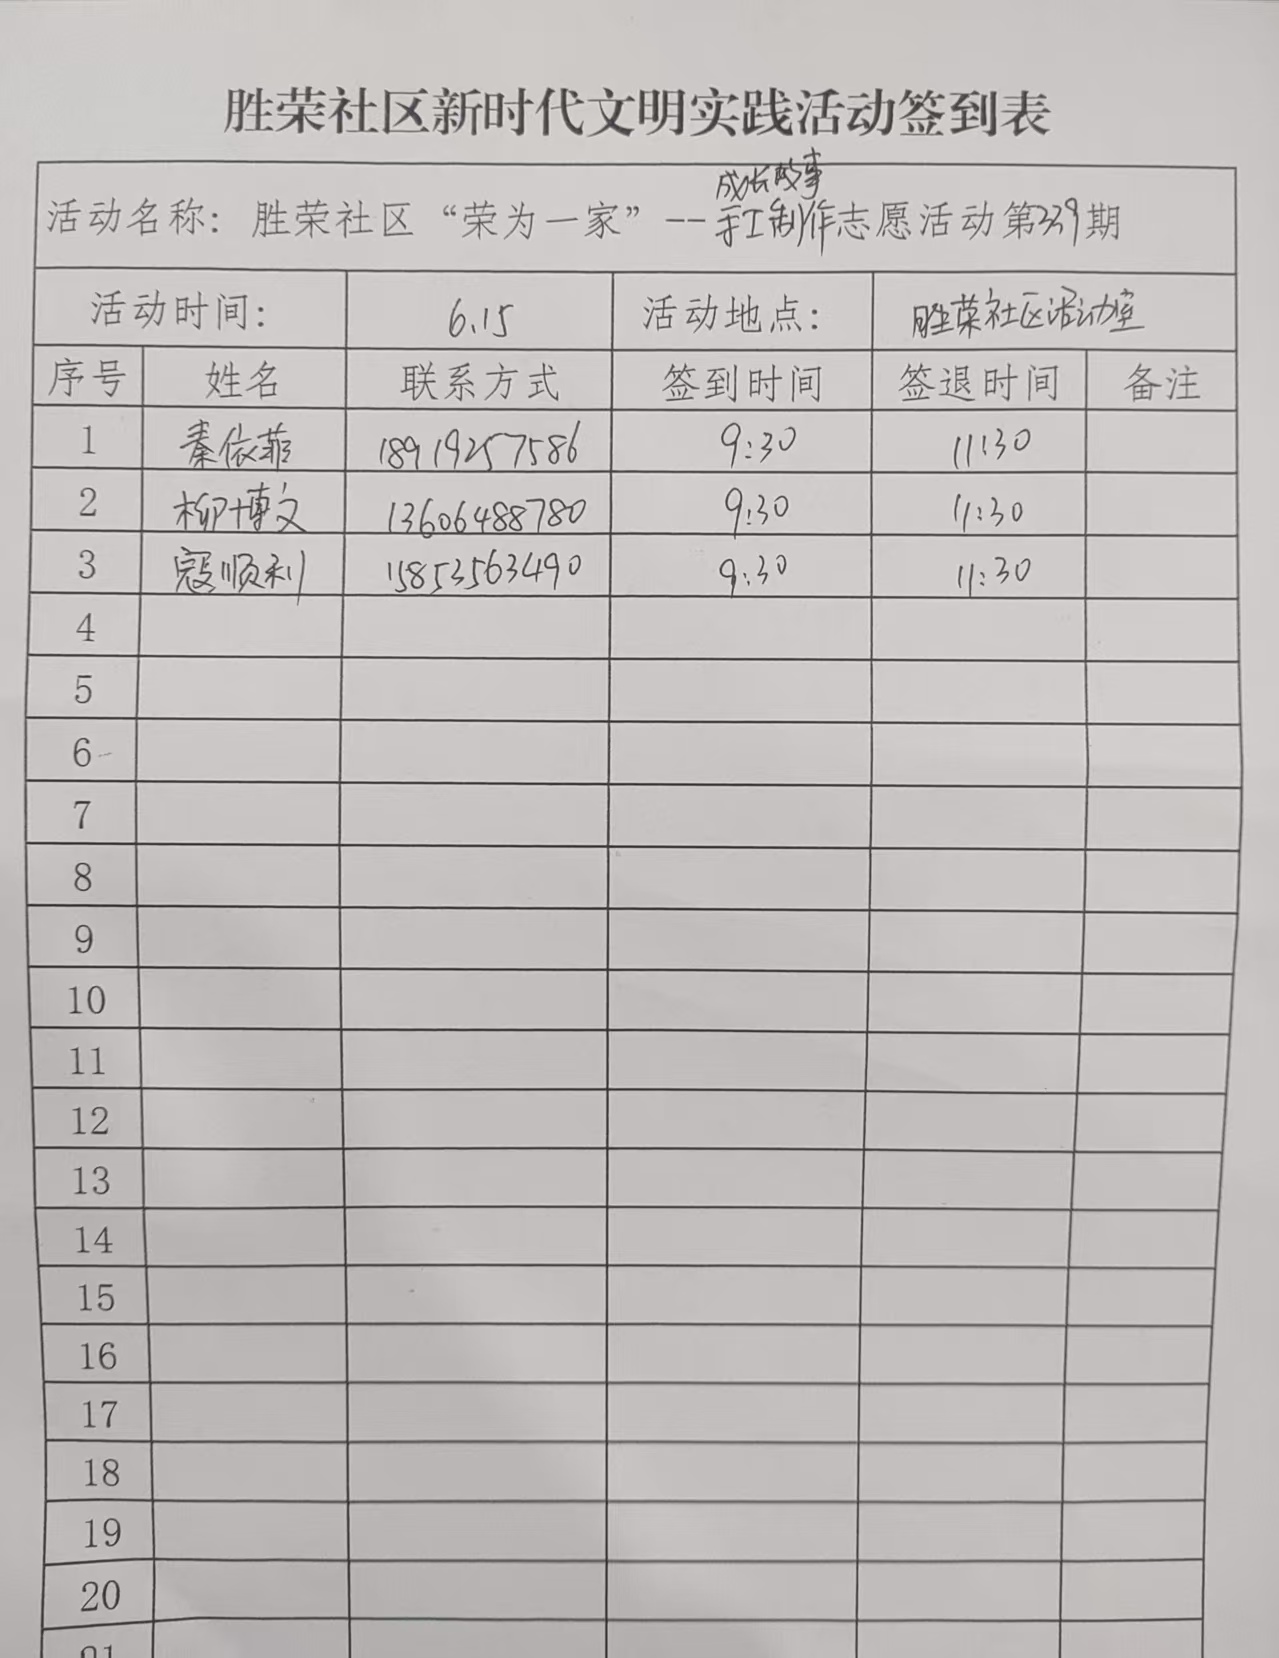 胜荣社区新时代文明实践活动签到表
成长故事
活动名称：胜荣社区“荣为一家”--手工制作志愿活动第339期
活动时间： 6.15 活动地点： 胜荣社区活动室
序号 姓名 联系方式 签到时间 签退时间 备注
1 秦依菲 18919257586 9:30 11:30
2 柳博文 13606488780 9:30 11:30
3 寇顺利 15853563490 9:30 11:30
4
5
6
7
8
9
10
11
12
13
14
15
16
17
18
19
20
21